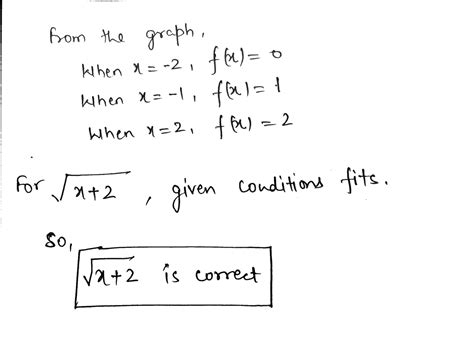 from the graph,
When x = -2, f(x) = 0
When x = -1, f(x) = 1
When x = 2, f(x) = 2
For √x+2, given conditions fits.
So,
√x+2 is correct